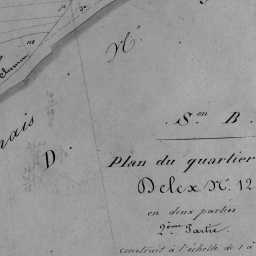 N.
S.on B.
nais
D.
Plan du quartier
Delex N. 12
en deux parties
2ème Partie.
construit à l'échelle de 1 à